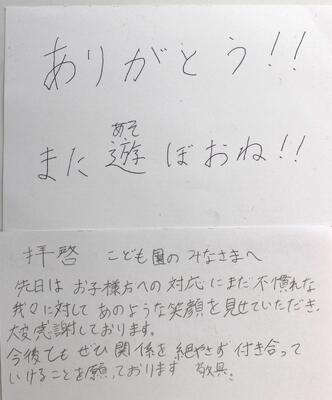 ありがとう!!
あそ
また遊ぼおね!!
拝啓 こども園のみなさまへ
先日はお子様方への対応にまだ不慣れな
我々に対してあのような笑顔を見せていただき、
大変感謝しております。
今後ともぜひ関係を絶やさず付き合って
いけることを願っております 敬具。